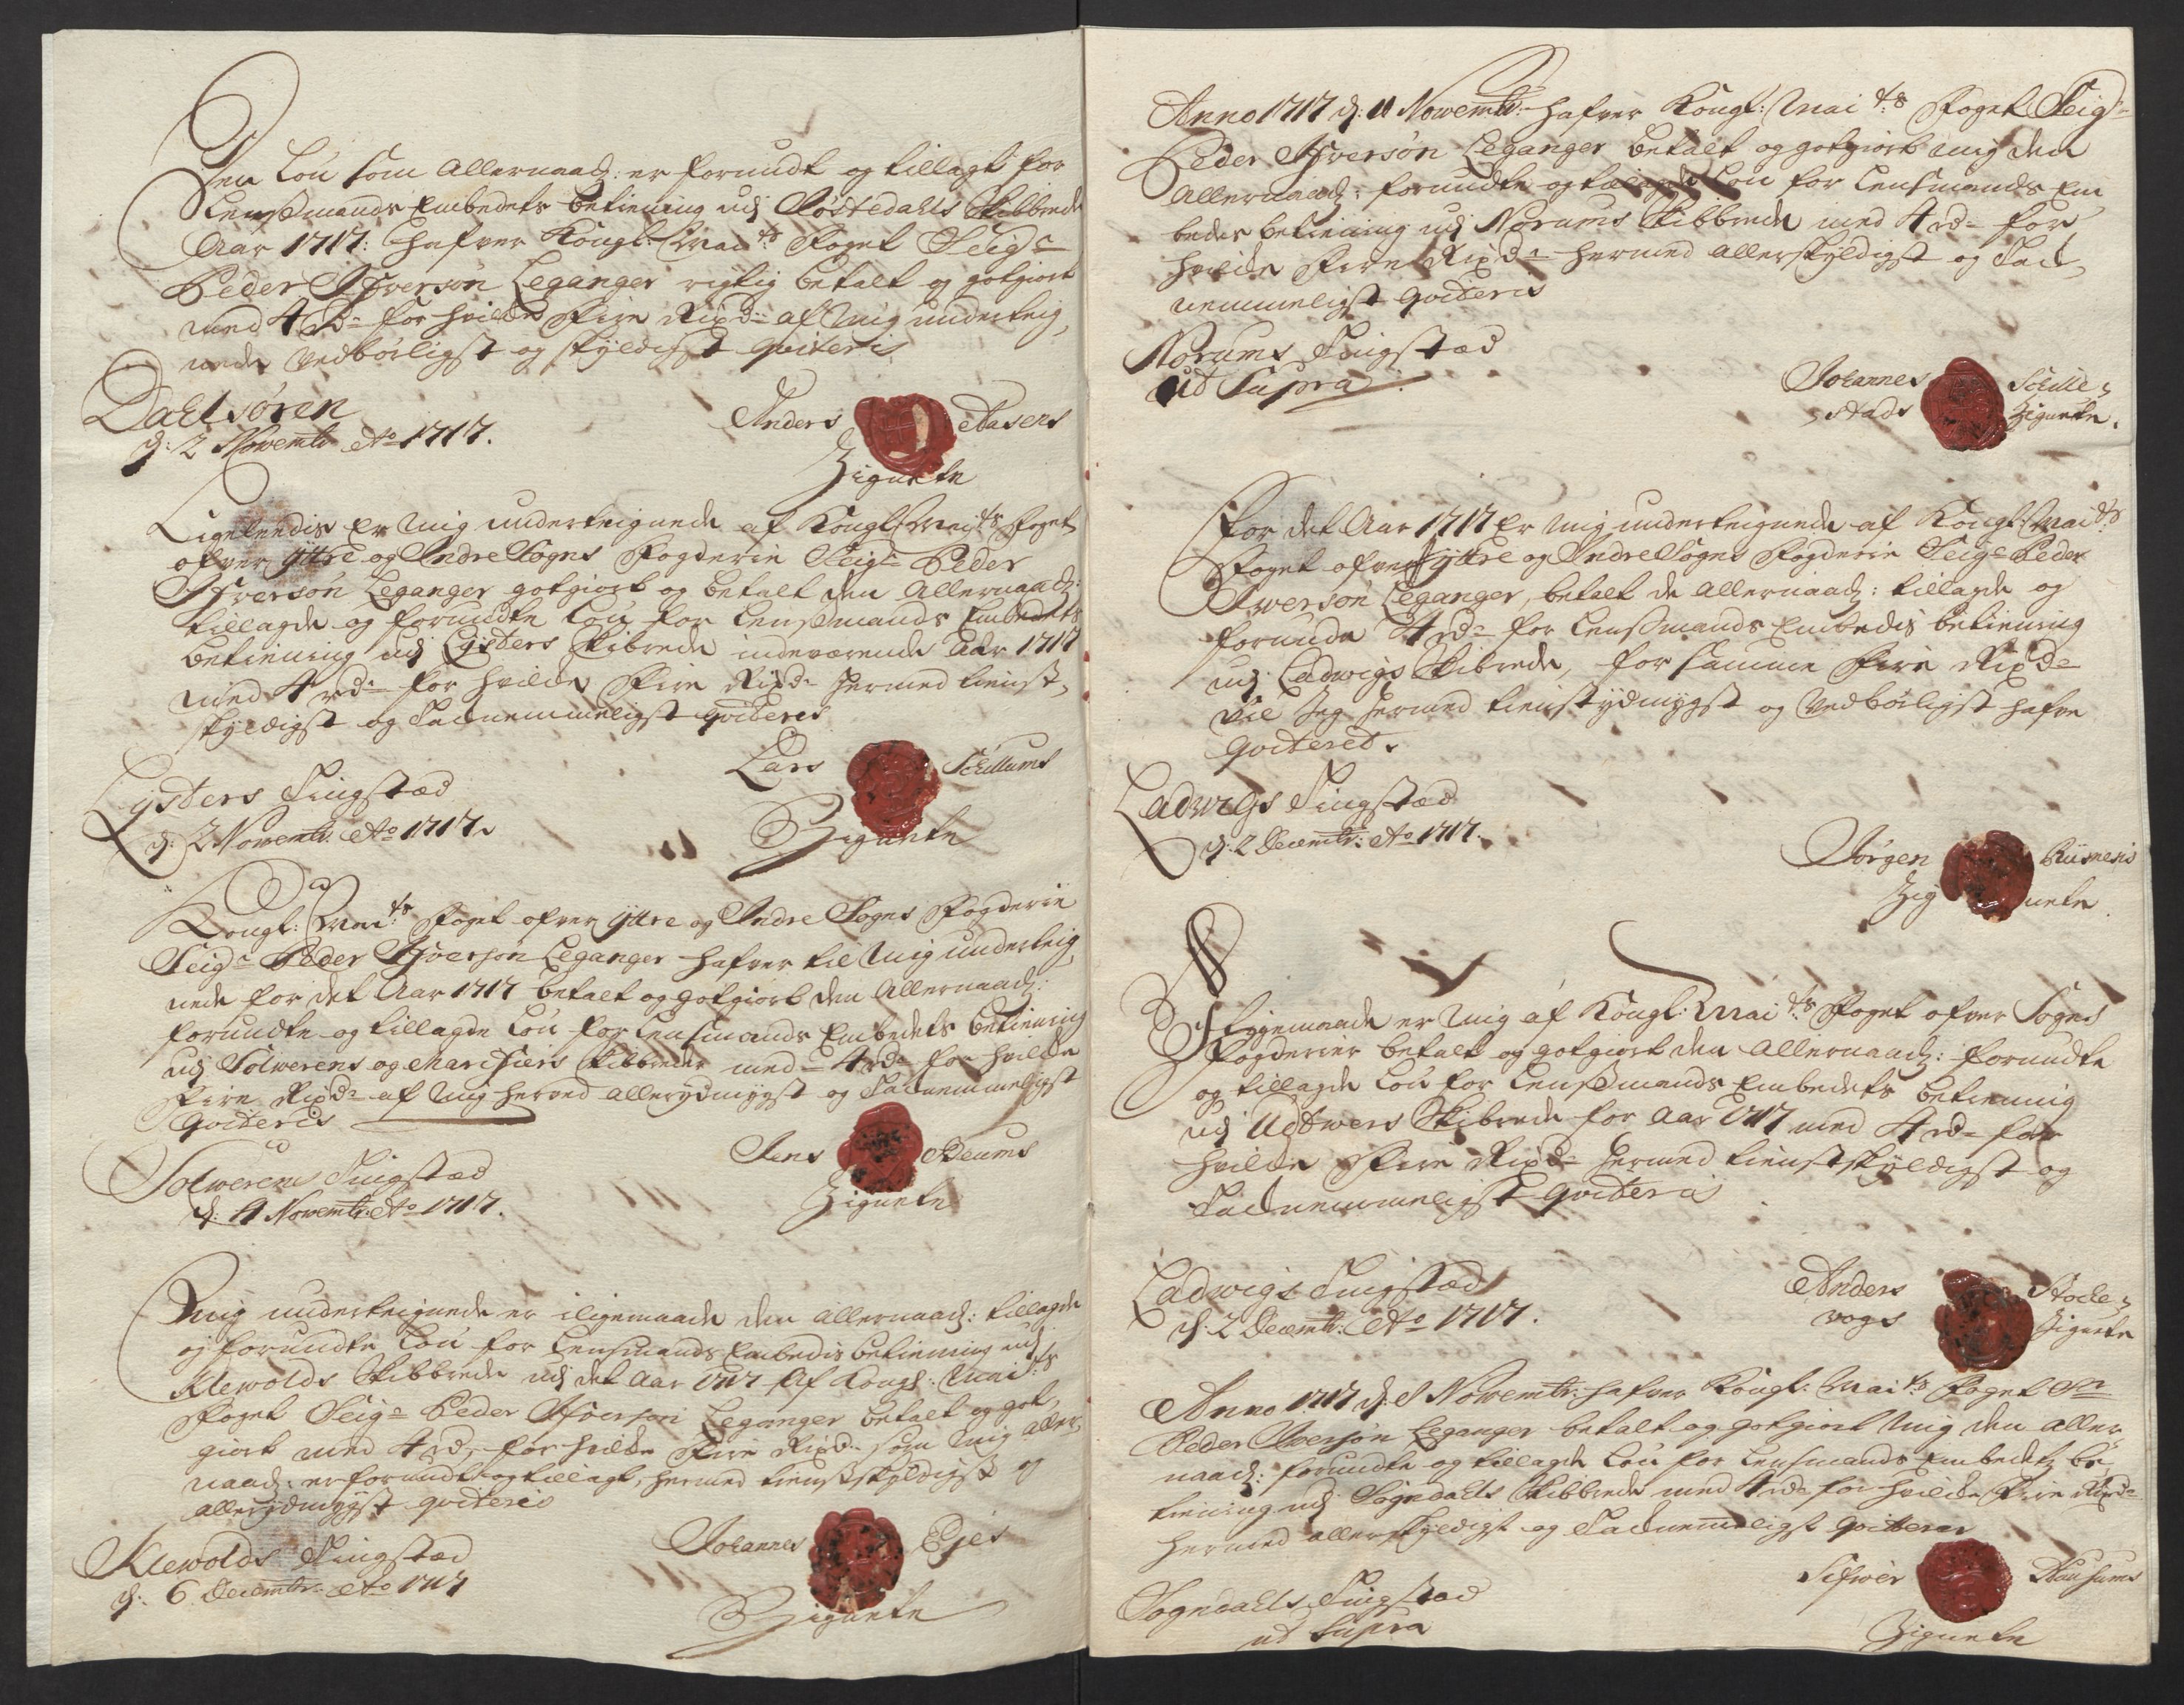 Den Løn som Allernaad: er forundt og tillagt for
Lensmands Embedets betiening udj Røstedahls Skibbrede
Aar 1717: hafver Kongl: Mai:ts Foget Seigr
Peder Ifversøn Leganger rigtig betalt og gotgiort
med 4 Rd: for hvilke Fire Rixd: af Mig underteig,
nede Vedbørligst og skyldigst qviteris
Dahlsøren
d: 2 Novembr Ao 1717.
Anders Aasens
Zignete
Ligeleedis Er Mig underteignede af Kongl: Mai:ts Foget
ofver yttre og Indre Sogns Fogderie Seigr Peder
Ifversøn Leganger gotgiort og betalt den Allernaad:
tillagde og forundte Løn for Lensmands Embedets
betiening udj Lysters Skibrede indeværende Aar 1717
med 4 rd: for hvilke Fire Rixd: hermed tienst,
skyldigst og Tacknemmeligst qviteres
Lysters Tingstæd
d: 2 Novembr: Ao 1717.
Lars Schiellums
Zignete
Kongl: Mai:ts Foget ofver yttre og Indre Sogns Fogderie
Seigr Peder Ifversøn Leganger hafver til Mig underteig,
nede for det Aar 1717 betalt og gotgiort den Allernaad:
forundte og tillagde Løn for Lensmands Embedets betiening
udj Solverens og Marifiers Skibbreder med 4 rd: for hvilke
Fire Rixd: af Mig herved allerydmygst og Tacknemmeligst
Qviteris
Solverens Tingstæd
d: 4 Novembr: Ao 1717.
Jens Beums
Zignete
Mig underteignede er iligemaade den Allernaad: tillagde
og forundte Løn for Lensmands Embedis betiening udj
Klewolds Skibbrede udj det Aar 1717 Af Kongl: Mai:ts
Foget Seigr Peder Ifversøn Leganger betalt og got,
giort med 4 rd, for hvilke Fire Rixd: som Mig aller,
naad: er forundt og tillagt, hermed tienstskyldigst og
allerydmygst qviteris
Klewolds Tingstæd
d: 6 Decembr: Ao 1717
Johannes Ejes
Zignete
Anno 1717 d: 11 Novembr: hafver Kongl: Mai:ts Foget Seigr
Peder Ifversøn Leganger betalt og gotgiort mig den
Allernaad: forundte og tillagde Løn for Lensmands Em,
bedes betiening udj Norums Skibbrede med 4 rd: for
hvilke Fire Rixd: hermed allerskyldigst og Tack,
nemmeligst qviteris
Norums Tingstæd
Ut Supra
Johannes Schille,
stads Zignete.
For det Aar 1717 Er Mig underteignede af Kongl: Mai:ts
Foget ofver yttre og Indre Sogns Fogderie Seigr Peder
Iversøn Leganger, betalt de Allernaad: tillagde og
forunde 4 rd: for Lensmands Embedis betiening
udj Ladwigs Skibrede, for samme Fire Rixd:
Vil Jeg hermed tienstydmygst og Vedbørligst hafve
Qviteret.
Ladwigs Tingstæd
d: 2 Decembr: Ao 1717.
Jørgen Rusnesis
Zig nete
Iligemaade er Mig af Kongl: Mai:ts Foget ofver Sogns
Fogderier betalt og gotgiort den Allernaad: forundte
og tillagde Løn for Lensmands Embedets betiening
udj Udtwers Skibrede for Aar 1717 med 4 rd: for
hvilke Fire Rixd: hermed tienstskyldigst og
Tacknemmeligst Qviteris
Ladwigs Tingstæd
d: 2 Decembr: Ao 1717.
Anders Stocke,
vogs Zignete
Anno 1717 d: 8 Novembr: hafver Kongl: Mai:ts Foget Sr
Peder Iversøn Leganger betalt og gotgiort Mig den Aller,
naad: forundte og tillagde Løn for Lensmands Embedtz be,
tiening udj Sogndals Skibbrede med 4 rd: for hvilke Fire Rixd:
hermed allerskyldigst og Tacknemmeligst qviterer
Sogndals Tingstæd
ut Supra
Sifwer Kaufums
Zignete